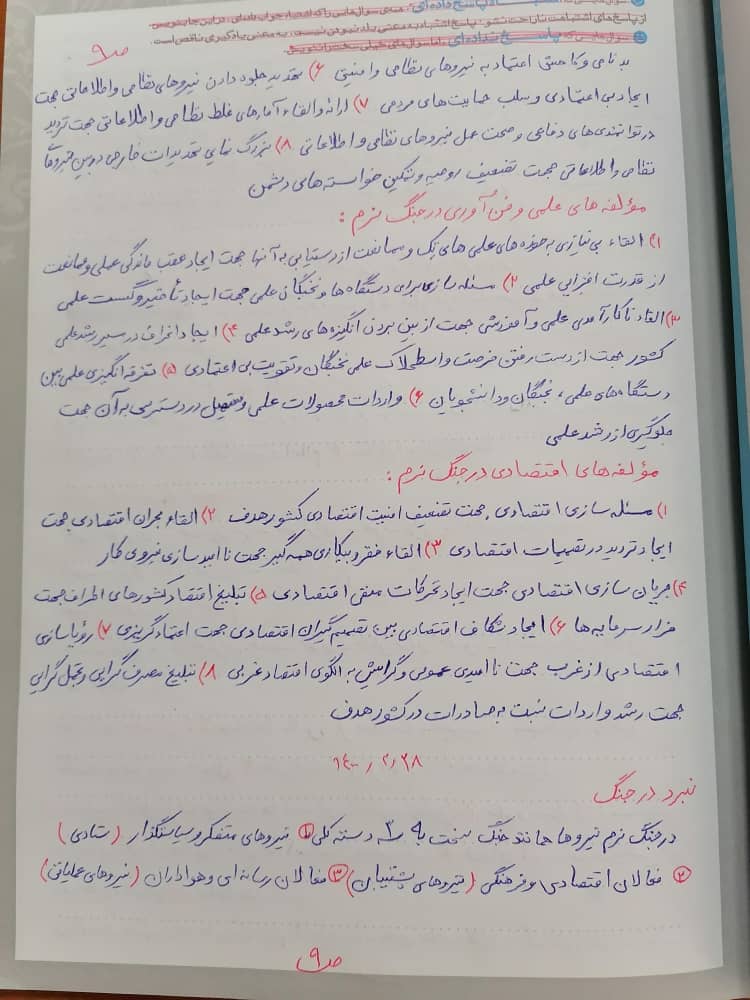 ص ۹
بدنامی و کاهش اعتماد به نیروهای نظامی و امنیتی ۶) تهدید جلوه دادن نیروهای نظامی و اطلاعاتی جهت
ایجاد بی اعتمادی و سلب حمایت‌های مردمی ۷) ارائه و القاء آمارهای غلط نظامی و اطلاعاتی جهت تردید
در توانمندی های دفاعی و صحت عمل نیروهای نظامی و اطلاعاتی ۸) بزرگ نمایی تهدیدات خارجی در بین نیروهای
نظامی و اطلاعاتی جهت تضعیف روحیه و تمکین خواسته های دشمن
مؤلفه های علمی و فن آوری در جنگ نرم :
۱) القاء بی نیازی به حوزه های علمی های تک و ممانعت از دستیابی به آنها جهت ایجاد عقب ماندگی علمی و ممانعت
از قدرت افزایی علمی ۲) مسئله سازی برای دستگاه ها و نخبگان علمی جهت ایجاد تأخیر و گسست علمی
۳) القاء ناکارآمدی علمی و آموزشی جهت از بین بردن انگیزه های رشد علمی ۴) ایجاد انحراف در مسیر رشد علمی
کشور جهت از دست رفتن فرصت و اسطحلاک علمی نخبگان و تقویت بی اعتمادی ۵) تفرقه انگیزی علمی بین
دستگاه های علمی ، نخبگان و دانشجویان ۶) واردات محصولات علمی و تسهیل در دسترسی به آن جهت
جلوگیری از رشد علمی
مؤلفه های اقتصادی در جنگ نرم :
۱) مسئله سازی اقتصادی جهت تضعیف امنیت اقتصادی کشور هدف ۲) القاء بحران اقتصادی جهت
ایجاد تردید در تصمیمات اقتصادی ۳) القاء فقر و بیکاری همه گیر جهت ناامید سازی نیروی کار
۴) جریان سازی اقتصادی جهت ایجاد تحرکات منفی اقتصادی ۵) تبلیغ اقتصاد کشورهای اطراف جهت
فرار سرمایه ها ۶) ایجاد شکاف اقتصادی بین تصمیم گیران اقتصادی جهت اعتماد گریزی ۷) رؤیاسازی
اقتصادی از غرب جهت ناامیدی عمومی و گرایش به الگوی اقتصاد غربی ۸) تبلیغ مصرف گرایی و تجمل گرایی
جهت رشد واردات نسبت به صادرات در کشور هدف
۱۴۰۰/۲/۲۸
نبرد در جنگ
در جنگ نرم نیروها همانند جنگ سخت به ۳ دسته کلی ۱ نیروهای متفکر و سیاستگذار (ستادی)
۲ فعالان اقتصادی و فرهنگی (نیروهای پشتیبان) ۳ فعالان رسانه ای و هواداران (نیروهای عملیاتی)
ص ۹